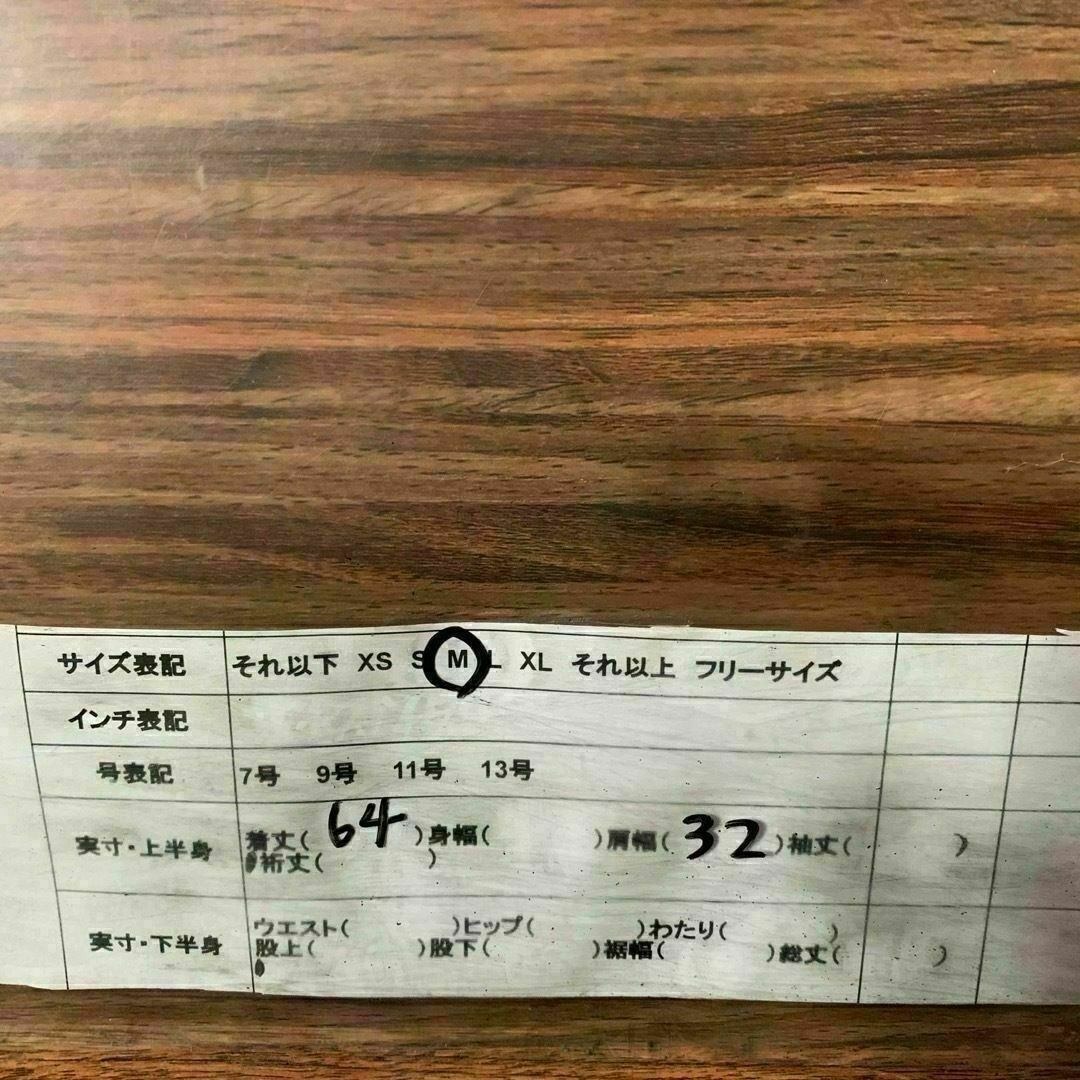 サイズ表記 それ以下 XS S M L XL それ以上 フリーサイズ
インチ表記
号表記 7号 9号 11号 13号
実寸・上半身 着丈( 64 )身幅( )肩幅( 32 )袖丈( )
裄丈( )
実寸・下半身 ウエスト( )ヒップ( )わたり( )
股上( )股下( )裾幅( )総丈( )